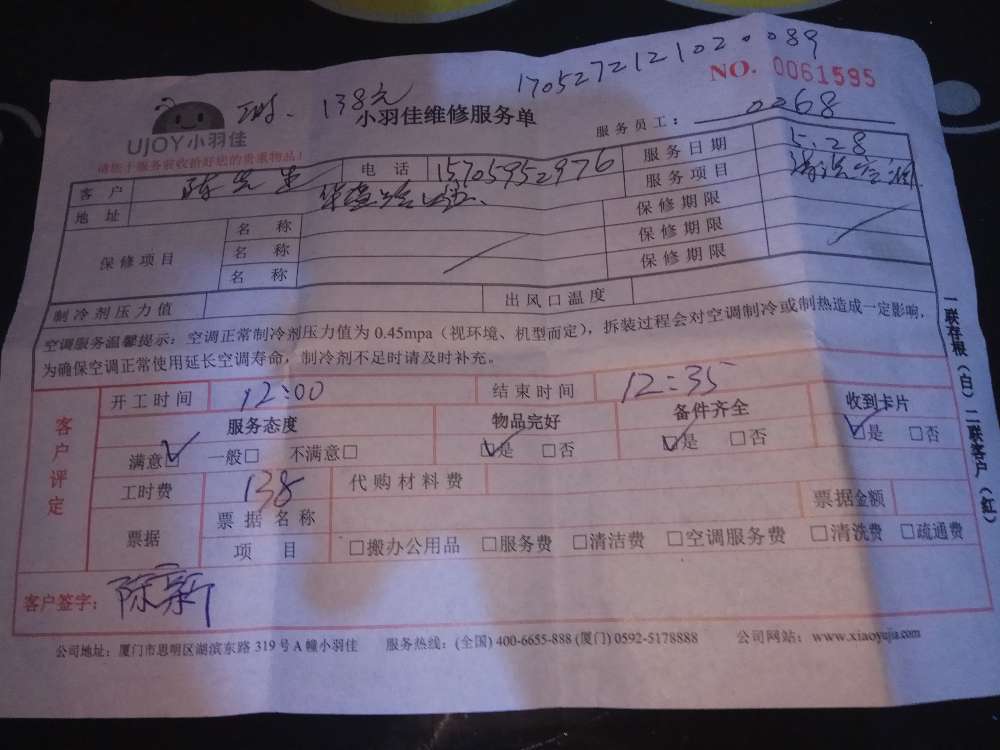 1705272121020089
NO. 0061595
138元
小羽佳维修服务单
UJOY小羽佳
服务员工: 0268
请您于服务前收拾好您的贵重物品!
客户 陈先生 电话 15705952976 服务日期 5.28
地址 服务项目
保修项目 名称 保修期限
名称 保修期限
名称 保修期限
制冷剂压力值 出风口温度
空调服务温馨提示:空调正常制冷剂压力值为 0.45mpa(视环境、机型而定),拆装过程会对空调制冷或制热造成一定影响,
为确保空调正常使用延长空调寿命,制冷剂不足时请及时补充。
一联存根(白)二联客户(红)
客户评定
开工时间 12:00 结束时间 12:35
服务态度 物品完好 备件齐全 收到卡片
满意☑ 一般□ 不满意□ ☑是 □否 ☑是 □否 ☑是 □否
工时费 138 代购材料费
票据 票据名称 票据金额
项目 □搬办公用品 □服务费 □清洁费 □空调服务费 □清洗费 □疏通费
客户签字: 陈新
公司地址:厦门市思明区湖滨东路 319 号 A 幢小羽佳 服务热线:(全国) 400-6655-888 (厦门) 0592-5178888 公司网站:www.xiaoyujia.com